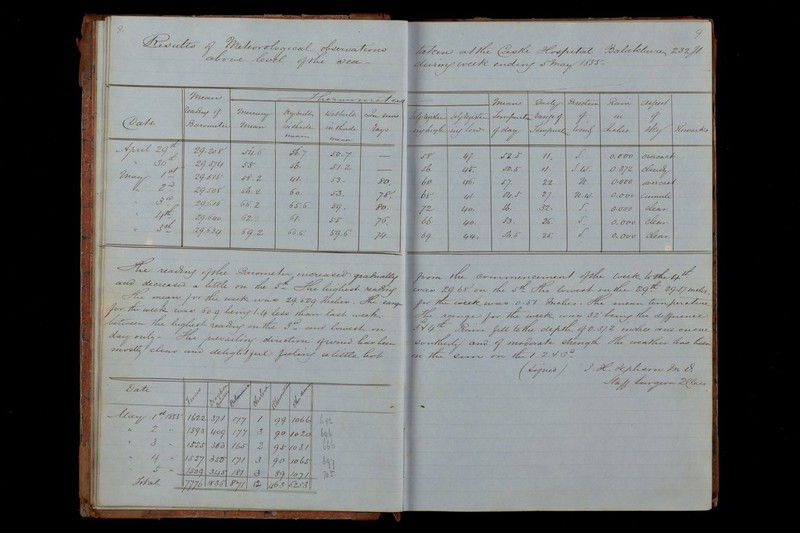 8.
Results of Meteorological observations
above level of the sea -
Date
Mean reading of Barometer
Thermometers
Mean
April 29th 29.508 54.6 56.7 50.7 —
" 30th 29.576 55. 56. 51.2 —
May 1st 29.555 58.2 61. 53. 80.
" 2nd 29.505 56.2 60. 53. 78.
" 3rd 29.616 65.2 65.6 59. 80.
" 4th 29.640 62. 61. 55 76.
" 5th 29.634 69.2 59.6 74.
The reading of the Barometer increased gradually
and decreased a little on the 5th. The highest reading
The mean for the week was 29.529 Inches. The range
for the week was 50.9 being 1.4 less than last week
between the highest reading on the 5th and lowest on
day only. The prevailing direction of wind has been
mostly clear and delightful feeling a little hot
Date
May 1st 1855 1622 371 177 1 99 1066 692
" 2 - 1593 409 177 3 90 1020 646
" 3 - 1525 165 2 95 1031 666
" 4 - 1527 355 171 3 90 1065 697
" 5 - 1509 345 181 3 89 1071 705
Total 7776 1835 871 12 463 5253
9.
taken at the Castle Hospital Balaklava, 232 ft
during week ending 5 May 1855 -
Mean Temperature of day
Daily range of Temperature
Direction of wind
Rain in inches
Aspect of Sky
Remarks
58. 47. 52.5 11. S. 0.000 overcast
56. 45. 50.5 11. S.W. 0.372 cloudy
68 46. 57. 22 0.000 overcast
68. 41. 54.5 27. N.W. 0.000 cumuli
72 40. 56. 32. S. 0.000 clear
66 40. 53. 26. S. 0.000 clear
69 44. 56.5 25. S. 0.000 clear
from the commencement of the week to the 4th
was 29.65 on the 5th the lowest on the 29th 29.57 inches.
for the week was 0.58 Inches. The mean temperature
The range for the week was 32 being the difference
3d 4th. Rain fell to the depth of 0.372 inches was on one
southerly and of moderate strength. The weather has been
in the sun on the 1. 2. & 3d
(Signed) J. H. Jephson M.D.
Staff Surgeon 2 Class